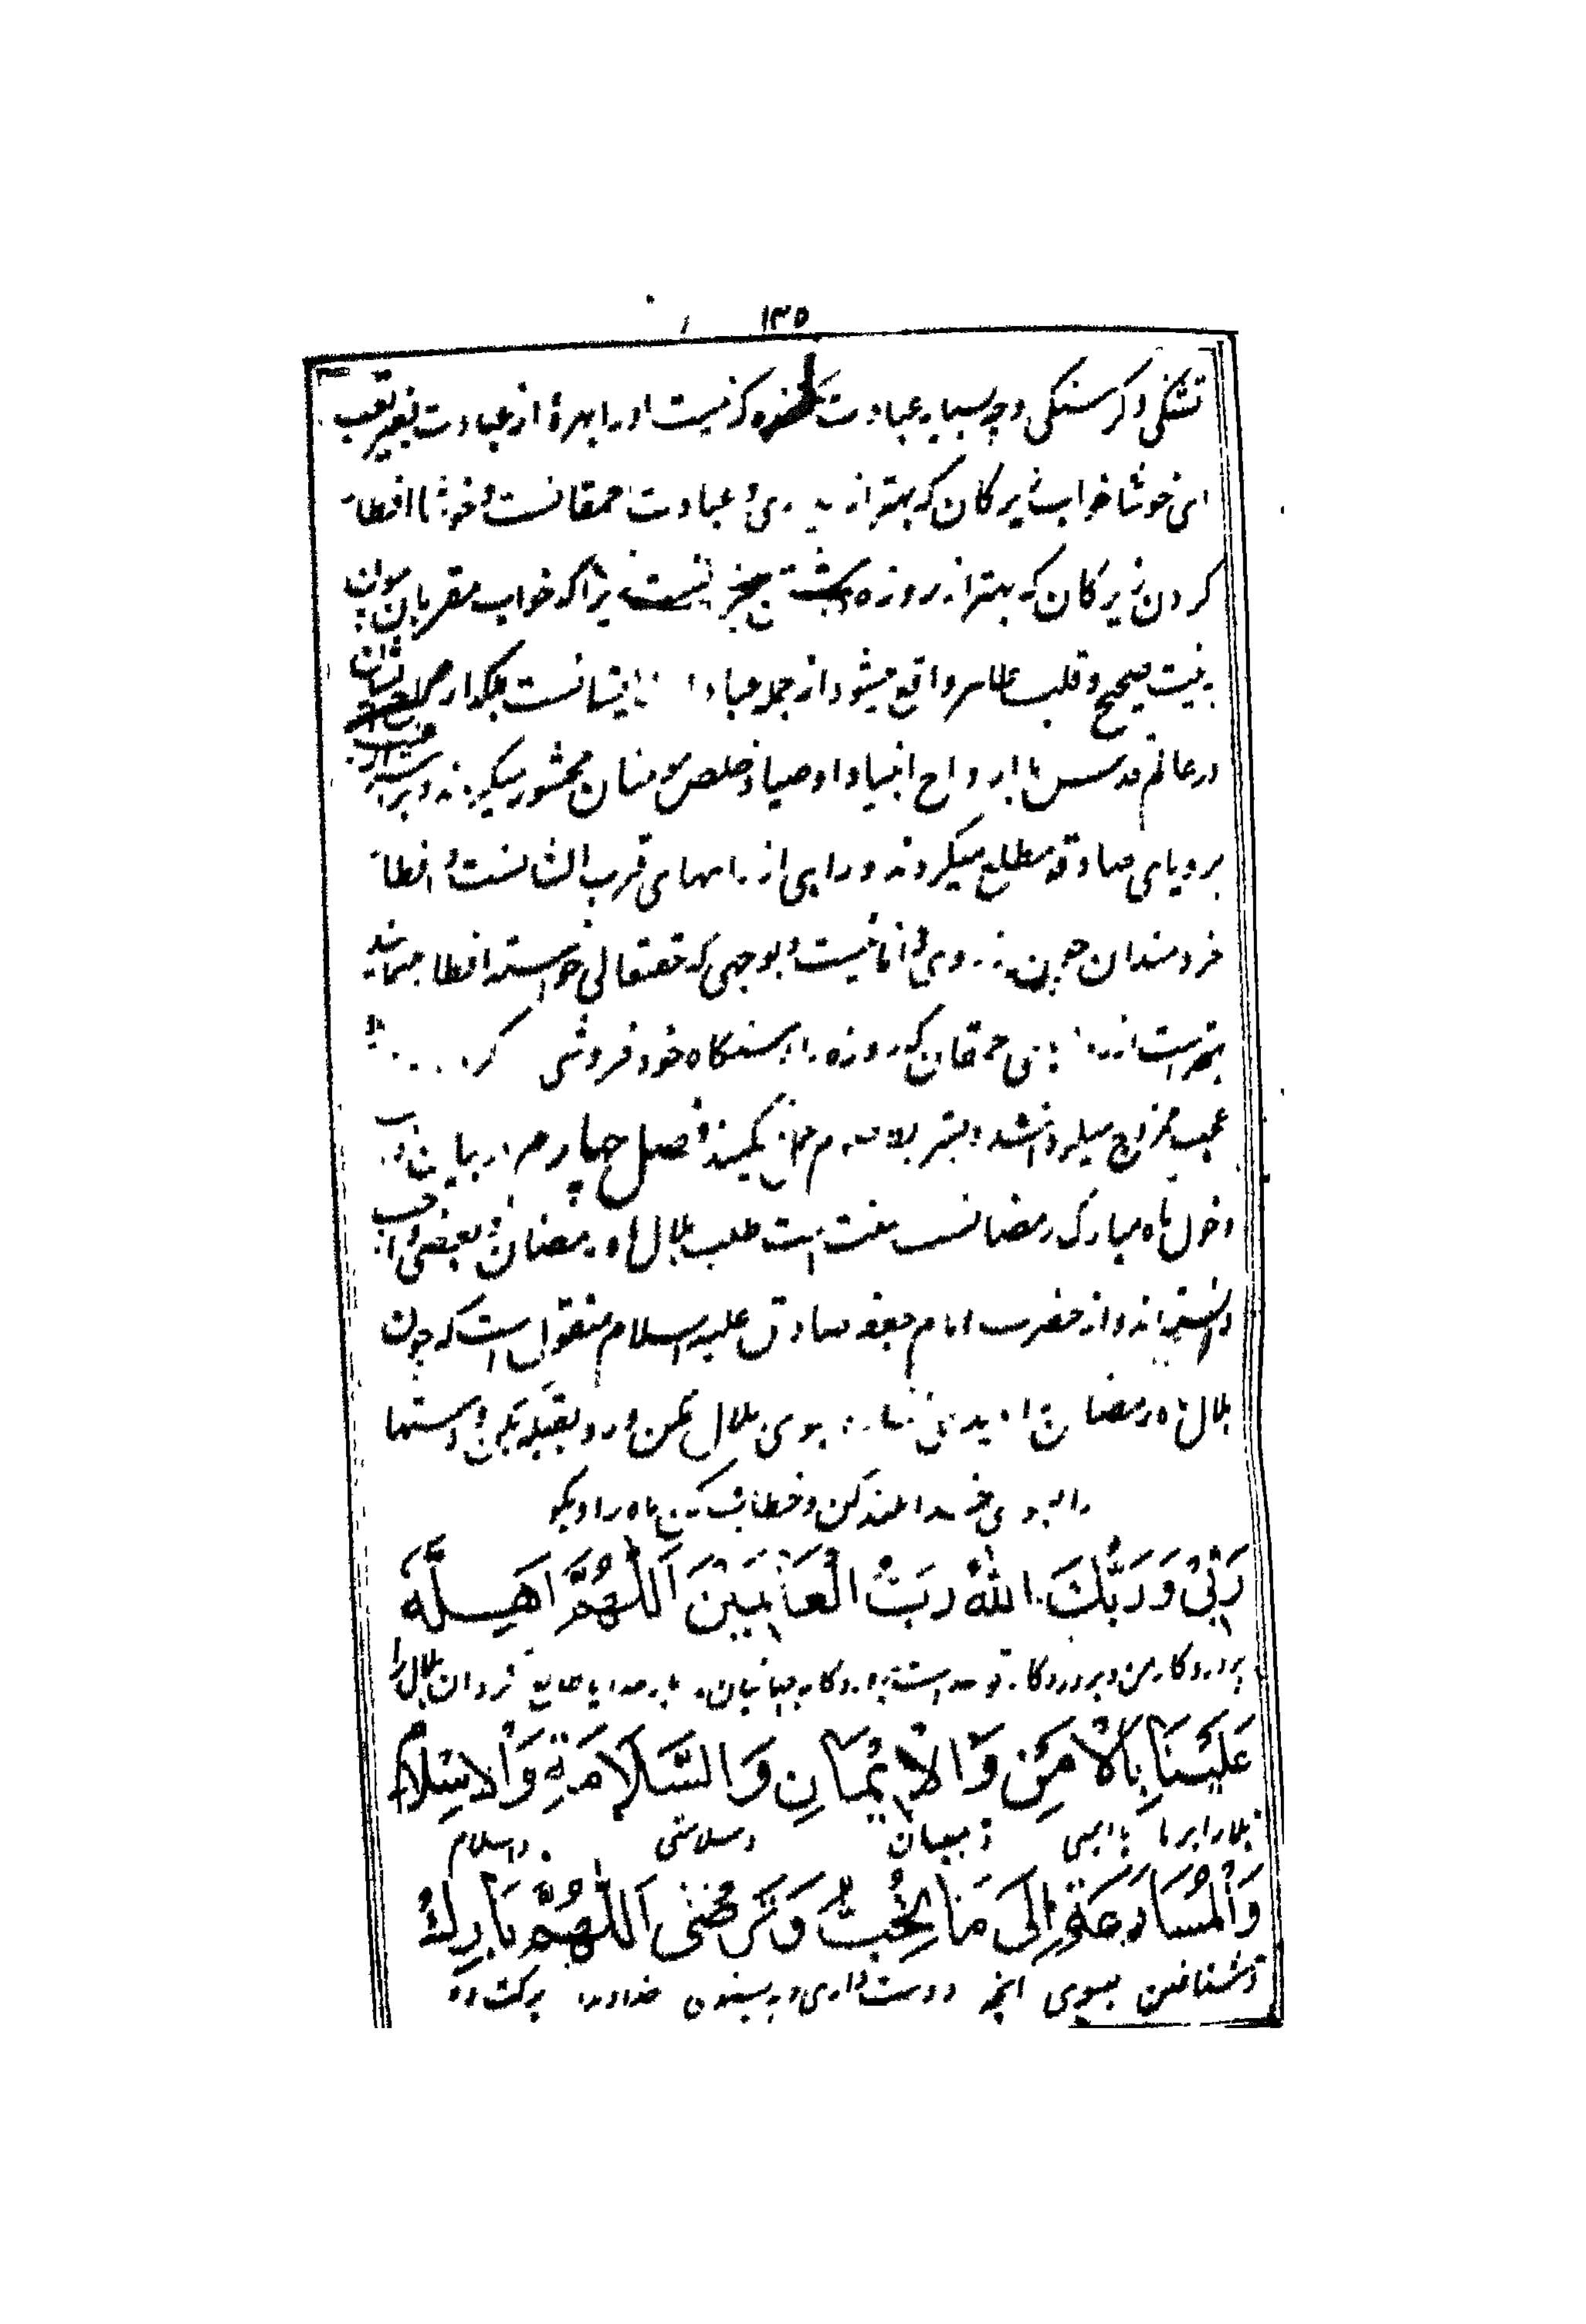 ۱۳۵
تشنگی و گرسنگی و چه بسیار عبادت کننده که نیست او را بهرهٔ از عبادت بغیر تعب
ای خوشا خواب زیرکان که بهتر از بیداری و عبادت احمقانست و خوشا افطار
کردن زیرکان که بهتر از روزه داشتن بیخردانست زیرا که خواب مقربان چون
به نیت صحیح و قلب طاهر واقع میشود از جمله عبادات ایشانست بلکه ارواح ایشان
در عالم قدس با ارواح انبیا و اوصیا و خلص مومنان محشور میگردند و بر
برویای صادقه مطلع میگردند و راهی از راههای قرب ایشانست و افطار
خردمندان چون از روی دانائیست و بوجهی که حقتعالی خواسته افطار مینمایند
بهتر است از بی حمقان که روزه را دستگاه خود فروشی
عجب فصل چهارم در بیان
دخول ماه مبارک رمضانست سنت است طلب هلال ماه رمضان و بعضی واجب
دانسته‌اند و از حضرت امام جعفر صادق علیه السلام منقول است که چون
هلال ماه رمضان را دیدی اشاره بسوی هلال مکن و رو بقبله بکن و دستها
را بسوی خدا بلند کن و خطاب کن ماه را و بگو
رَبِّی وَرَبُّکَ اللهُ رَبُّ الْعَالَمِینَ اَللّهُمَّ اَهِلَّهُ
پروردگار من و پروردگار تو خداست پروردگار جهانیان بار خدایا طالع گردان هلال را
عَلَیْنَا بِالْاَمْنِ وَالْاِیْمَانِ وَالسَّلَامَةِ وَالْاِسْلَامِ
بر ما با ایمنی و ایمان و سلامتی و اسلام
وَالْمُسَارَعَةِ اِلَی مَا تُحِبُّ وَتَرْضٰی اَللّهُمَّ بَارِکْ
و شتافتن بسوی انچه دوست داری و به پسندی خداوندا برکت ده